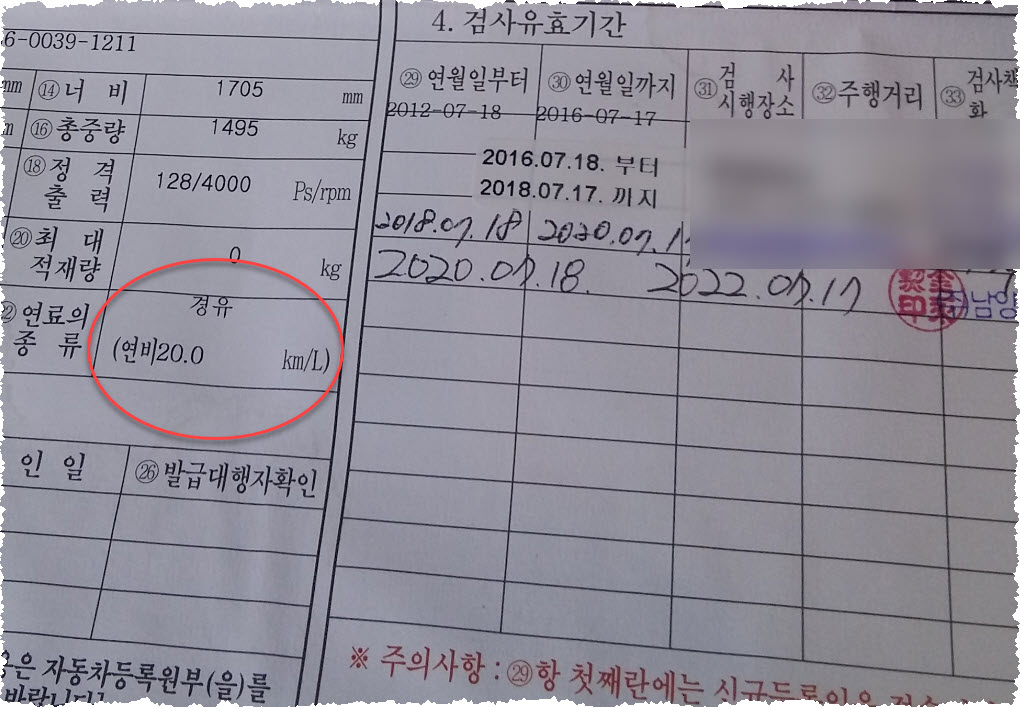 6-0039-1211
mm ⑭ 너 비 1705 mm
⑯ 총중량 1495 kg
⑱ 정 격 출 력 128/4000 Ps/rpm
⑳ 최 대 적재량 0 kg
연료의 종 류 경유
(연비20.0 km/L)
인 일 ㉖ 발급대행자확인
은 자동차등록원부(을)를
바랍니다.
4. 검사유효기간
㉙ 연월일부터 ㉚ 연월일까지 ㉛ 검 사 시행장소 ㉜ 주행거리 ㉝ 검사책
2012-07-18 2016-07-17
2016.07.18. 부터
2018.07.17. 까지
2018.07.18 2020.07.1
2020.07.18. 2022.07.17
남양
※ 주의사항 : ㉙항 첫째란에는 신규등록일을